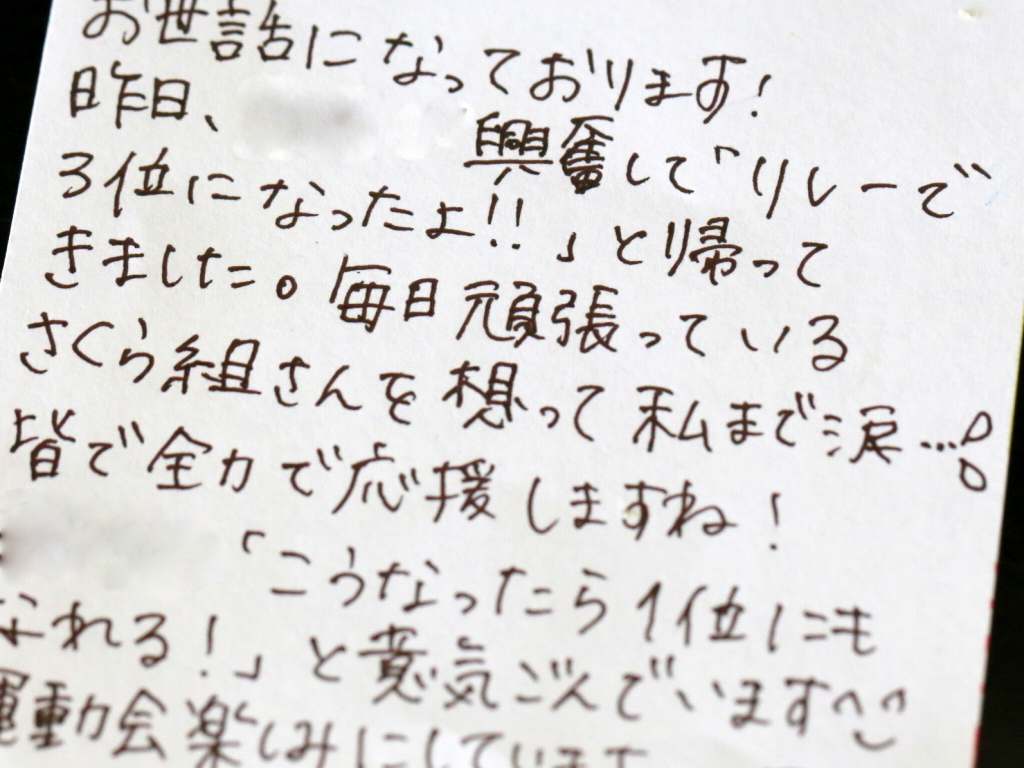 お世話になっております!
昨日、 興奮して「リレーで
3位になったよ!!」と帰って
きました。毎日頑張っている
さくら組さんを想って私まで涙…
皆で全力で応援しますね!
「こうなったら1位にも
なれる!」と意気ごんでいます^^
運動会楽しみにしています